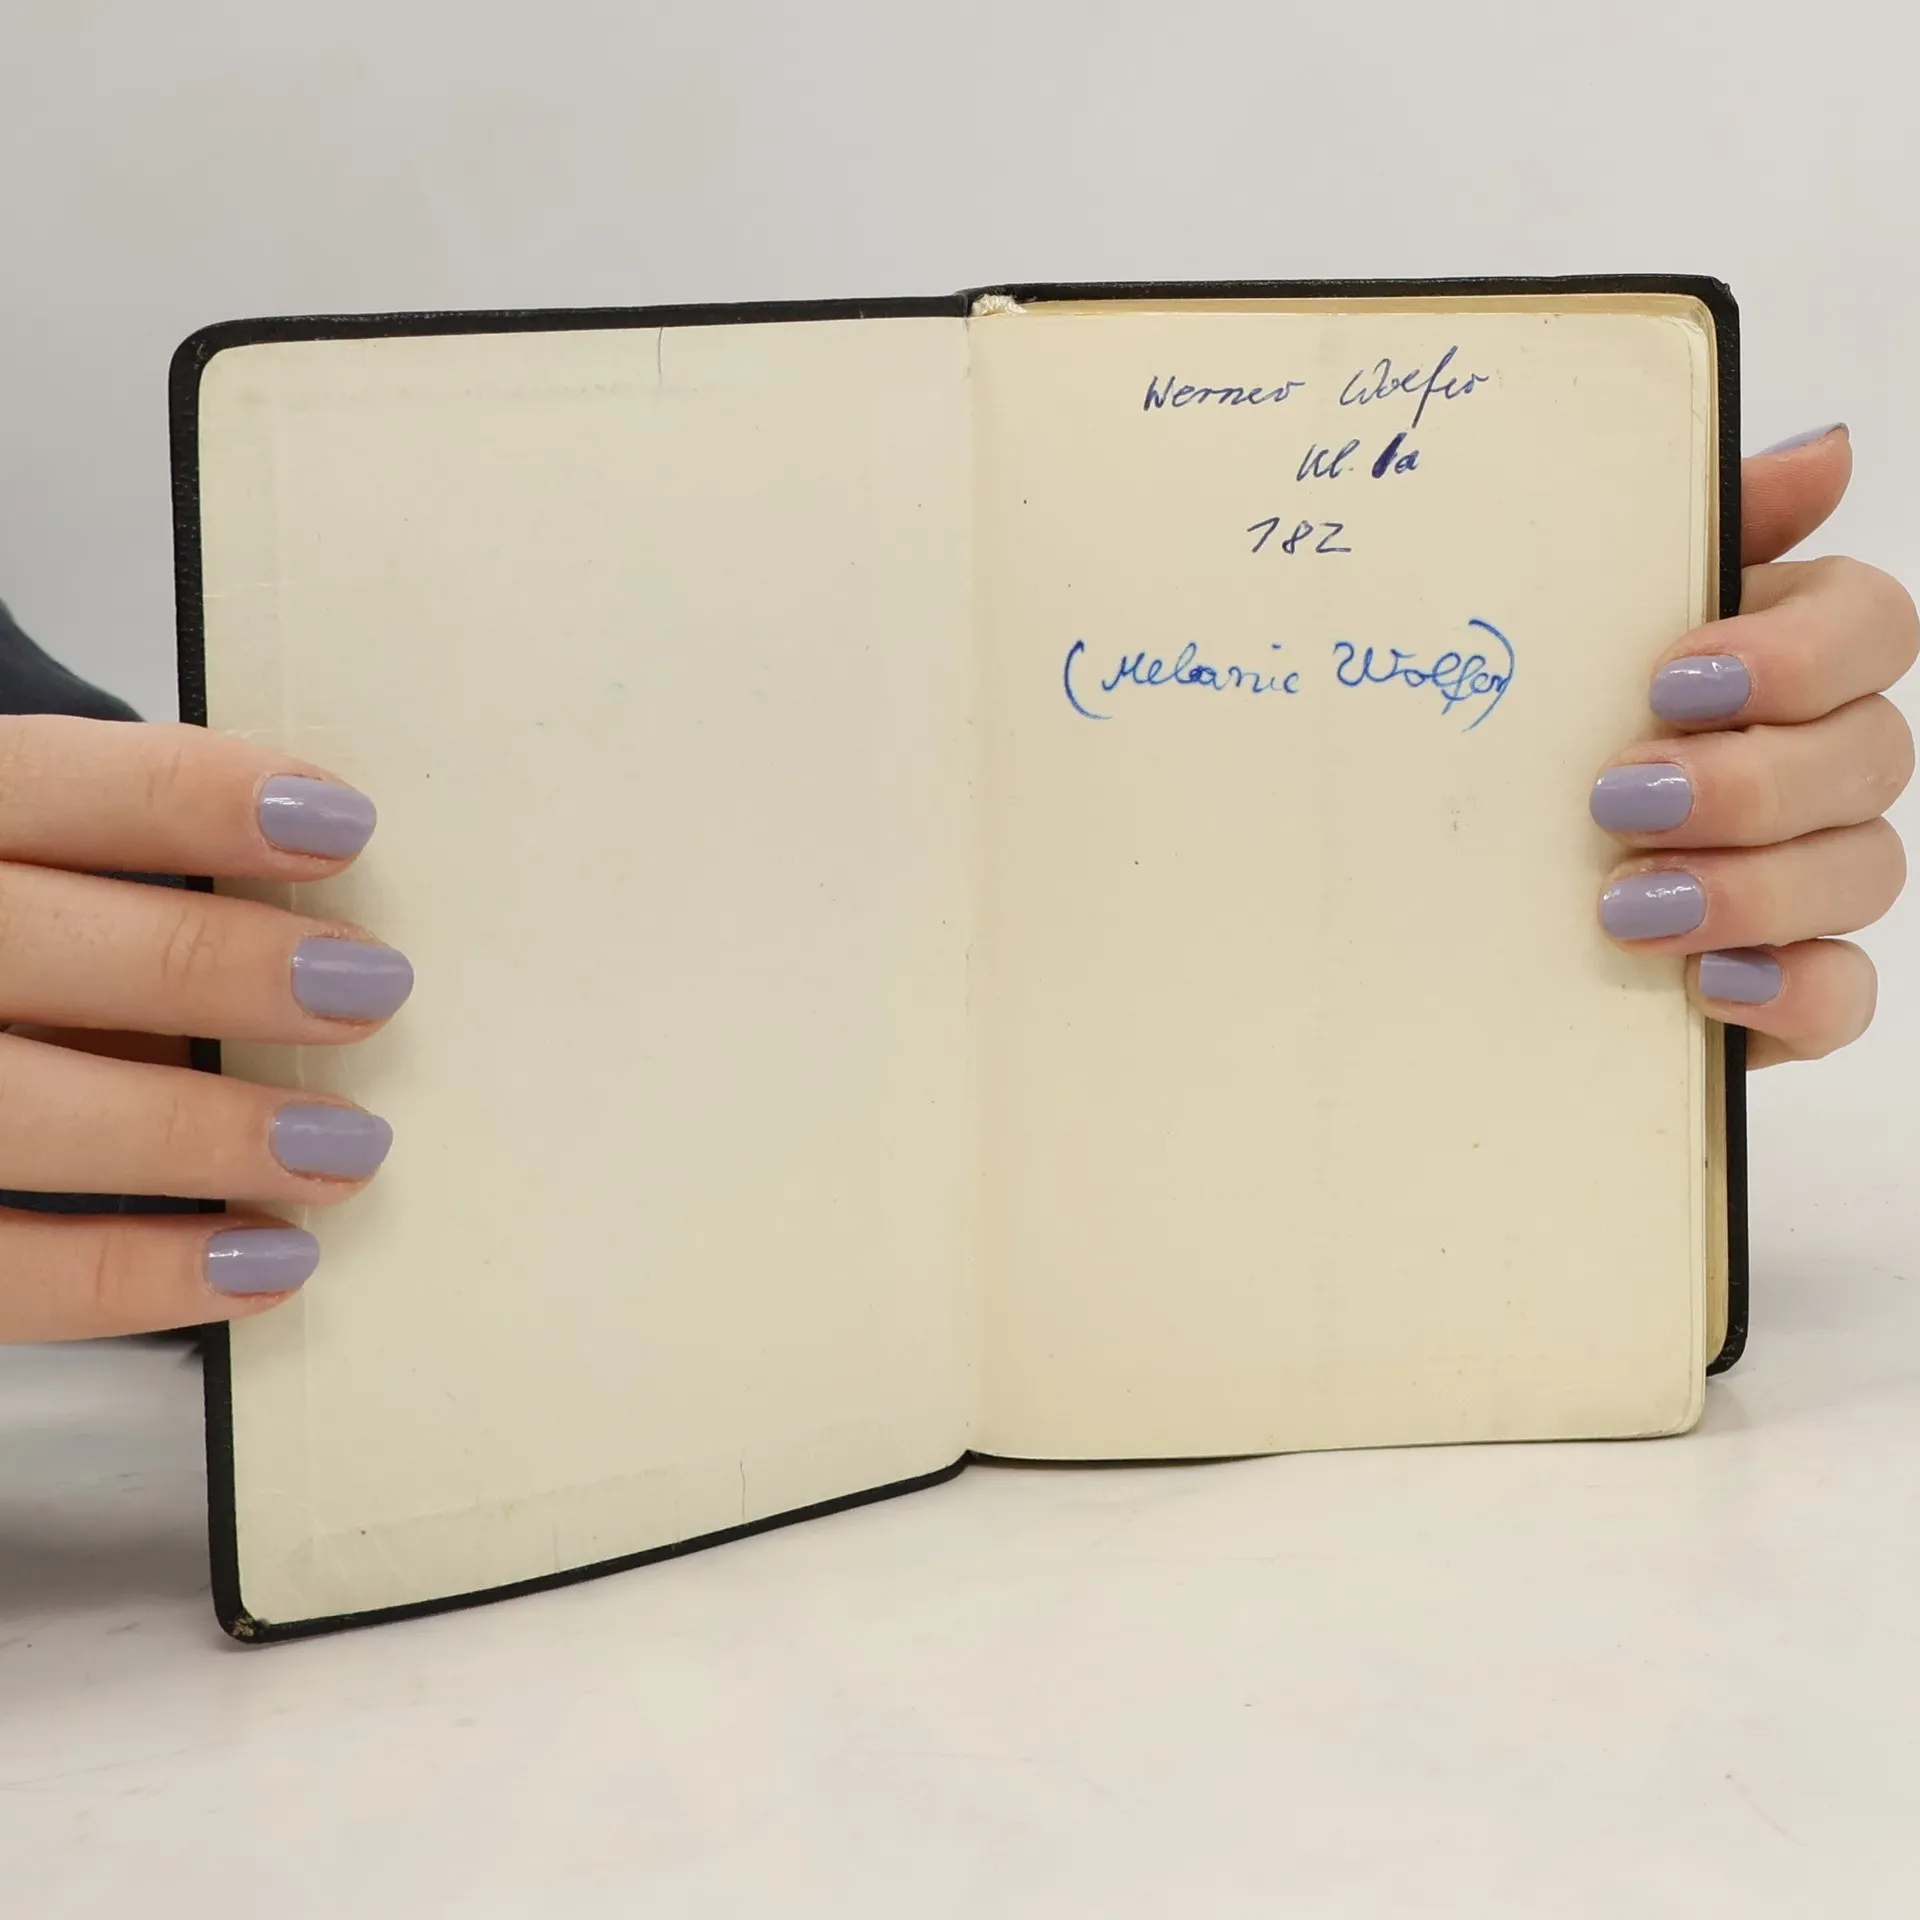 Werner Wolfer
Kl. 1a
182
(Melanie Wolfer)